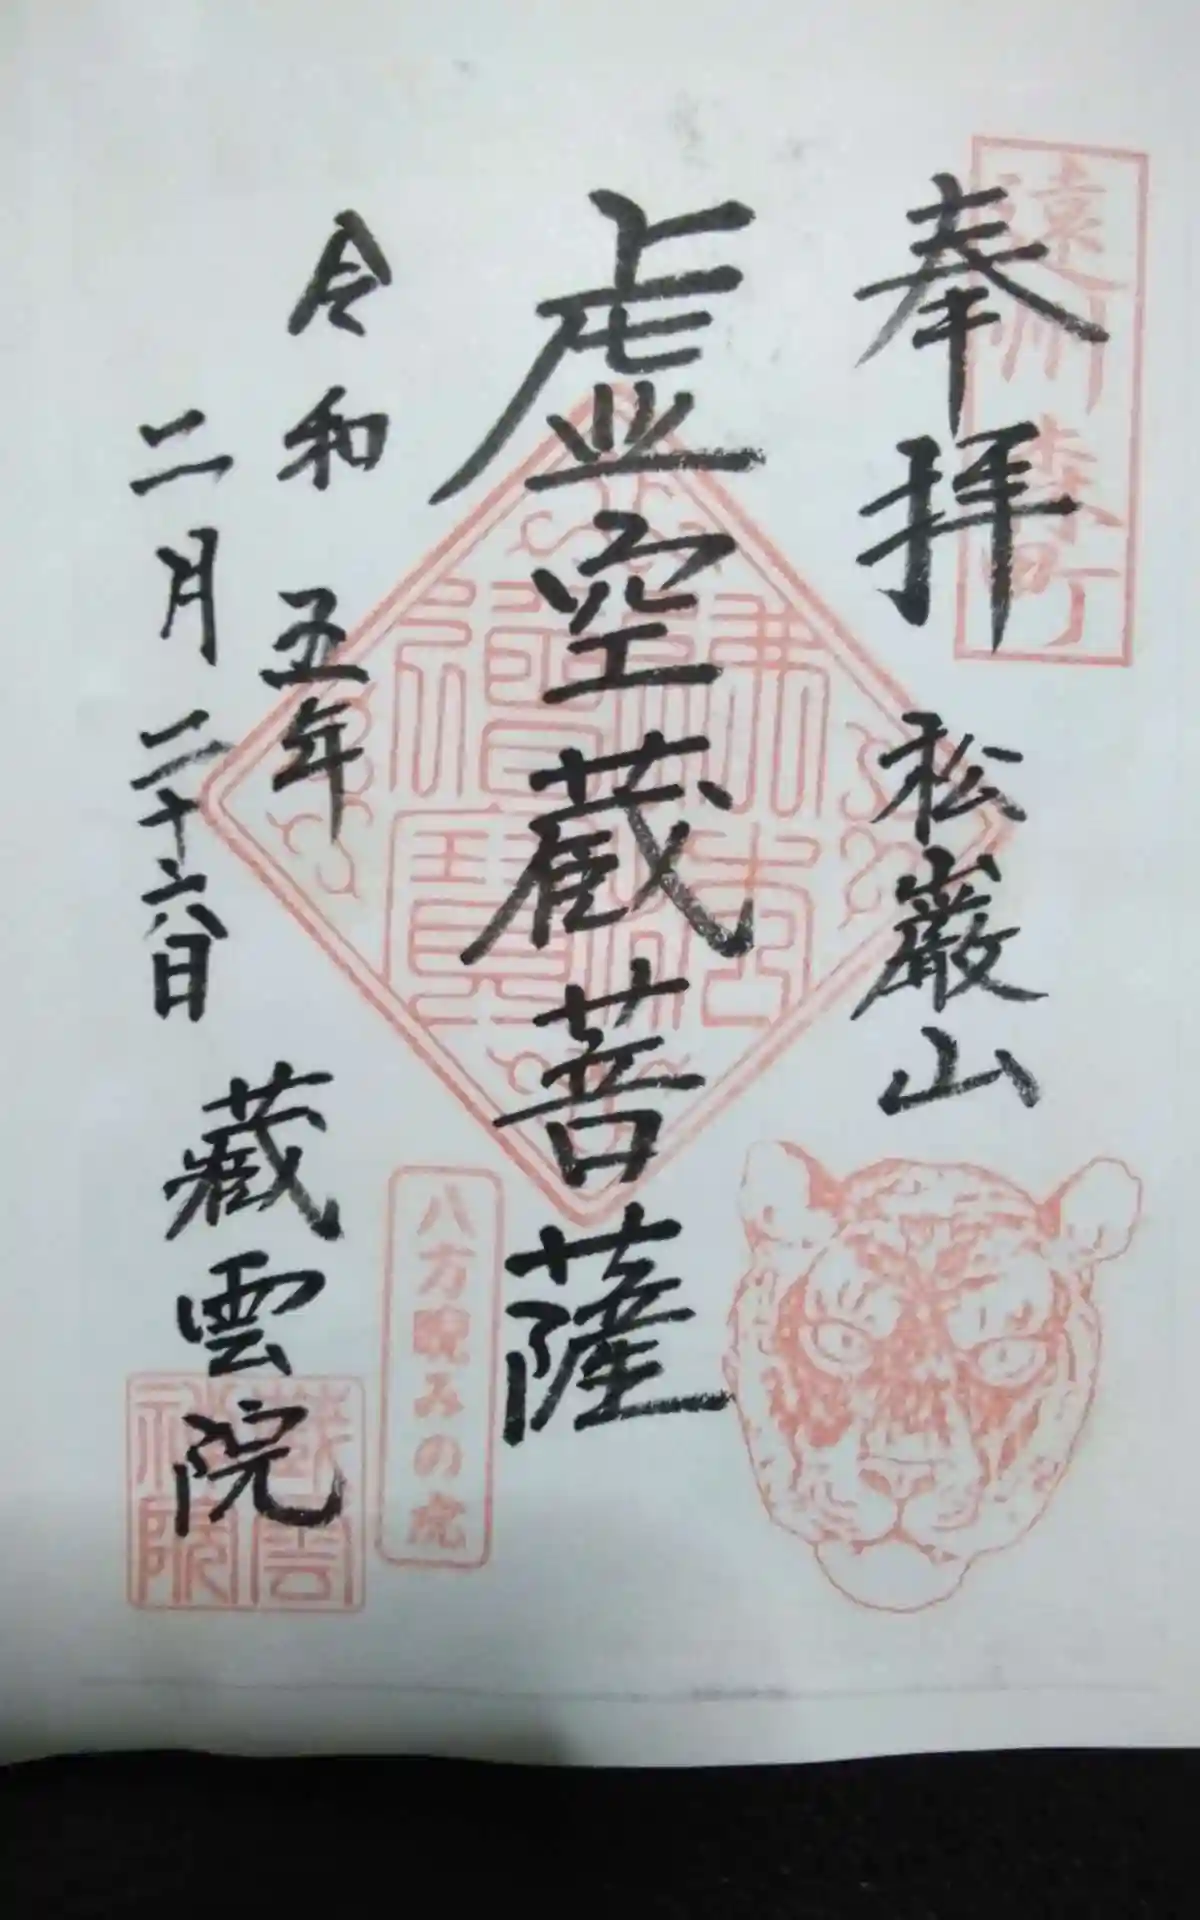 遠州森町
奉拝
松巖山
虚空蔵菩薩
佛法僧寶
八方睨みの虎
令和五年
二月二十六日
蔵雲院